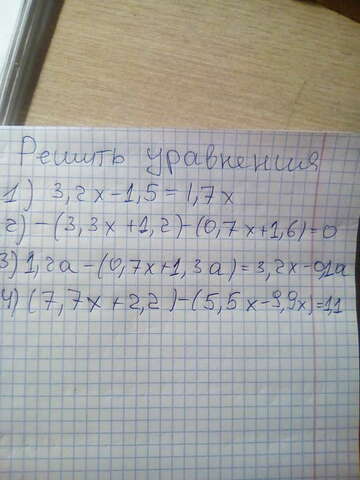 Решить уравнения
1) 3,2x-1,5=1,7x
2) -(3,3x+1,2)-(0,7x+1,6)=0
3) 1,2a-(0,7x+1,3a)=3,2x-0,1a
4) (7,7x+2,2)-(5,5x-9,9x)=1,1